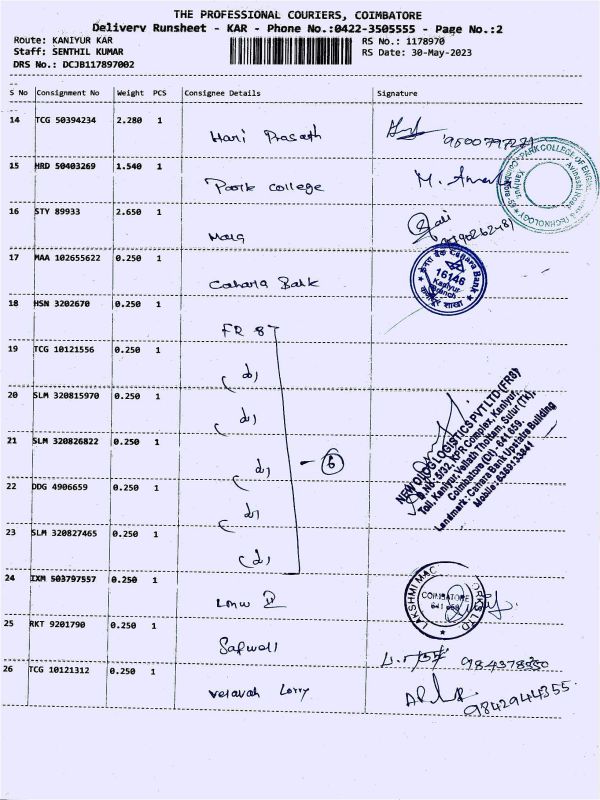 THE PROFESSIONAL COURIERS, COIMBATORE
Delivery Runsheet - KAR - Phone No.:0422-3505555 - Page No.:2
Route: KANIYUR KAR RS No.: 1178970
Staff: SENTHIL KUMAR RS Date: 30-May-2023
DRS No.: DCJB117897002
S No Consignment No Weight PCS Consignee Details Signature
14 TCG 50394234 2.280 1
Hari Prasath
15 HRD 50403269 1.540 1
PARK COLLEGE OF
TECHNOLOGY
Avinashi Road
Kaniyur
Poork college M.
16 STY 89933 2.650 1
17 MAA 102655622 0.250 1
केनरा बैंक Canara Bank
16146
Kaniyur
Branch
शाखा
Canara Bank
18 HSN 3202670 0.250 1
FR 8
19 TCG 10121556 0.250 1
(d)
20 SLM 320815970 0.250 1
(d)
21 SLM 320826822 0.250 1
(d) 6
NEW OLOG LOGISTICS PVT LTD (FR8)
D.No: 5/32, KPR Complex, Kaniyur,
Toll, Kaniyur, Vellath Thottam, Sulur (Tk),
Coimbatore (Dt) - 641 659.
Landmark : Canara Bank Upstairs Building
Mobile : 6369133841
22 DDG 4906659 0.250 1
(d)
23 SLM 320827465 0.250 1
(d)
24 IXM 503797557 0.250 1
LAKSHMI MAC
WORKS LTD
COIMBATORE
Lmw
25 RKT 9201790 0.250 1
26 TCG 10121312 0.250 1
Lorry 9842944355